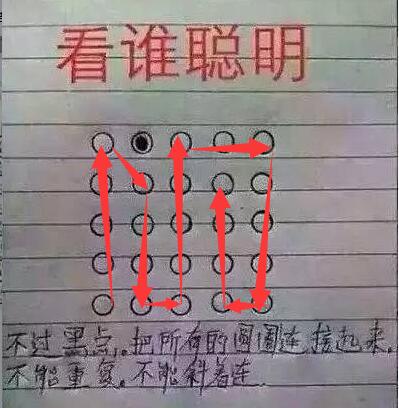 看谁聪明
不过黑点,把所有的圆圈连接起来,
不能重复,不能斜着连